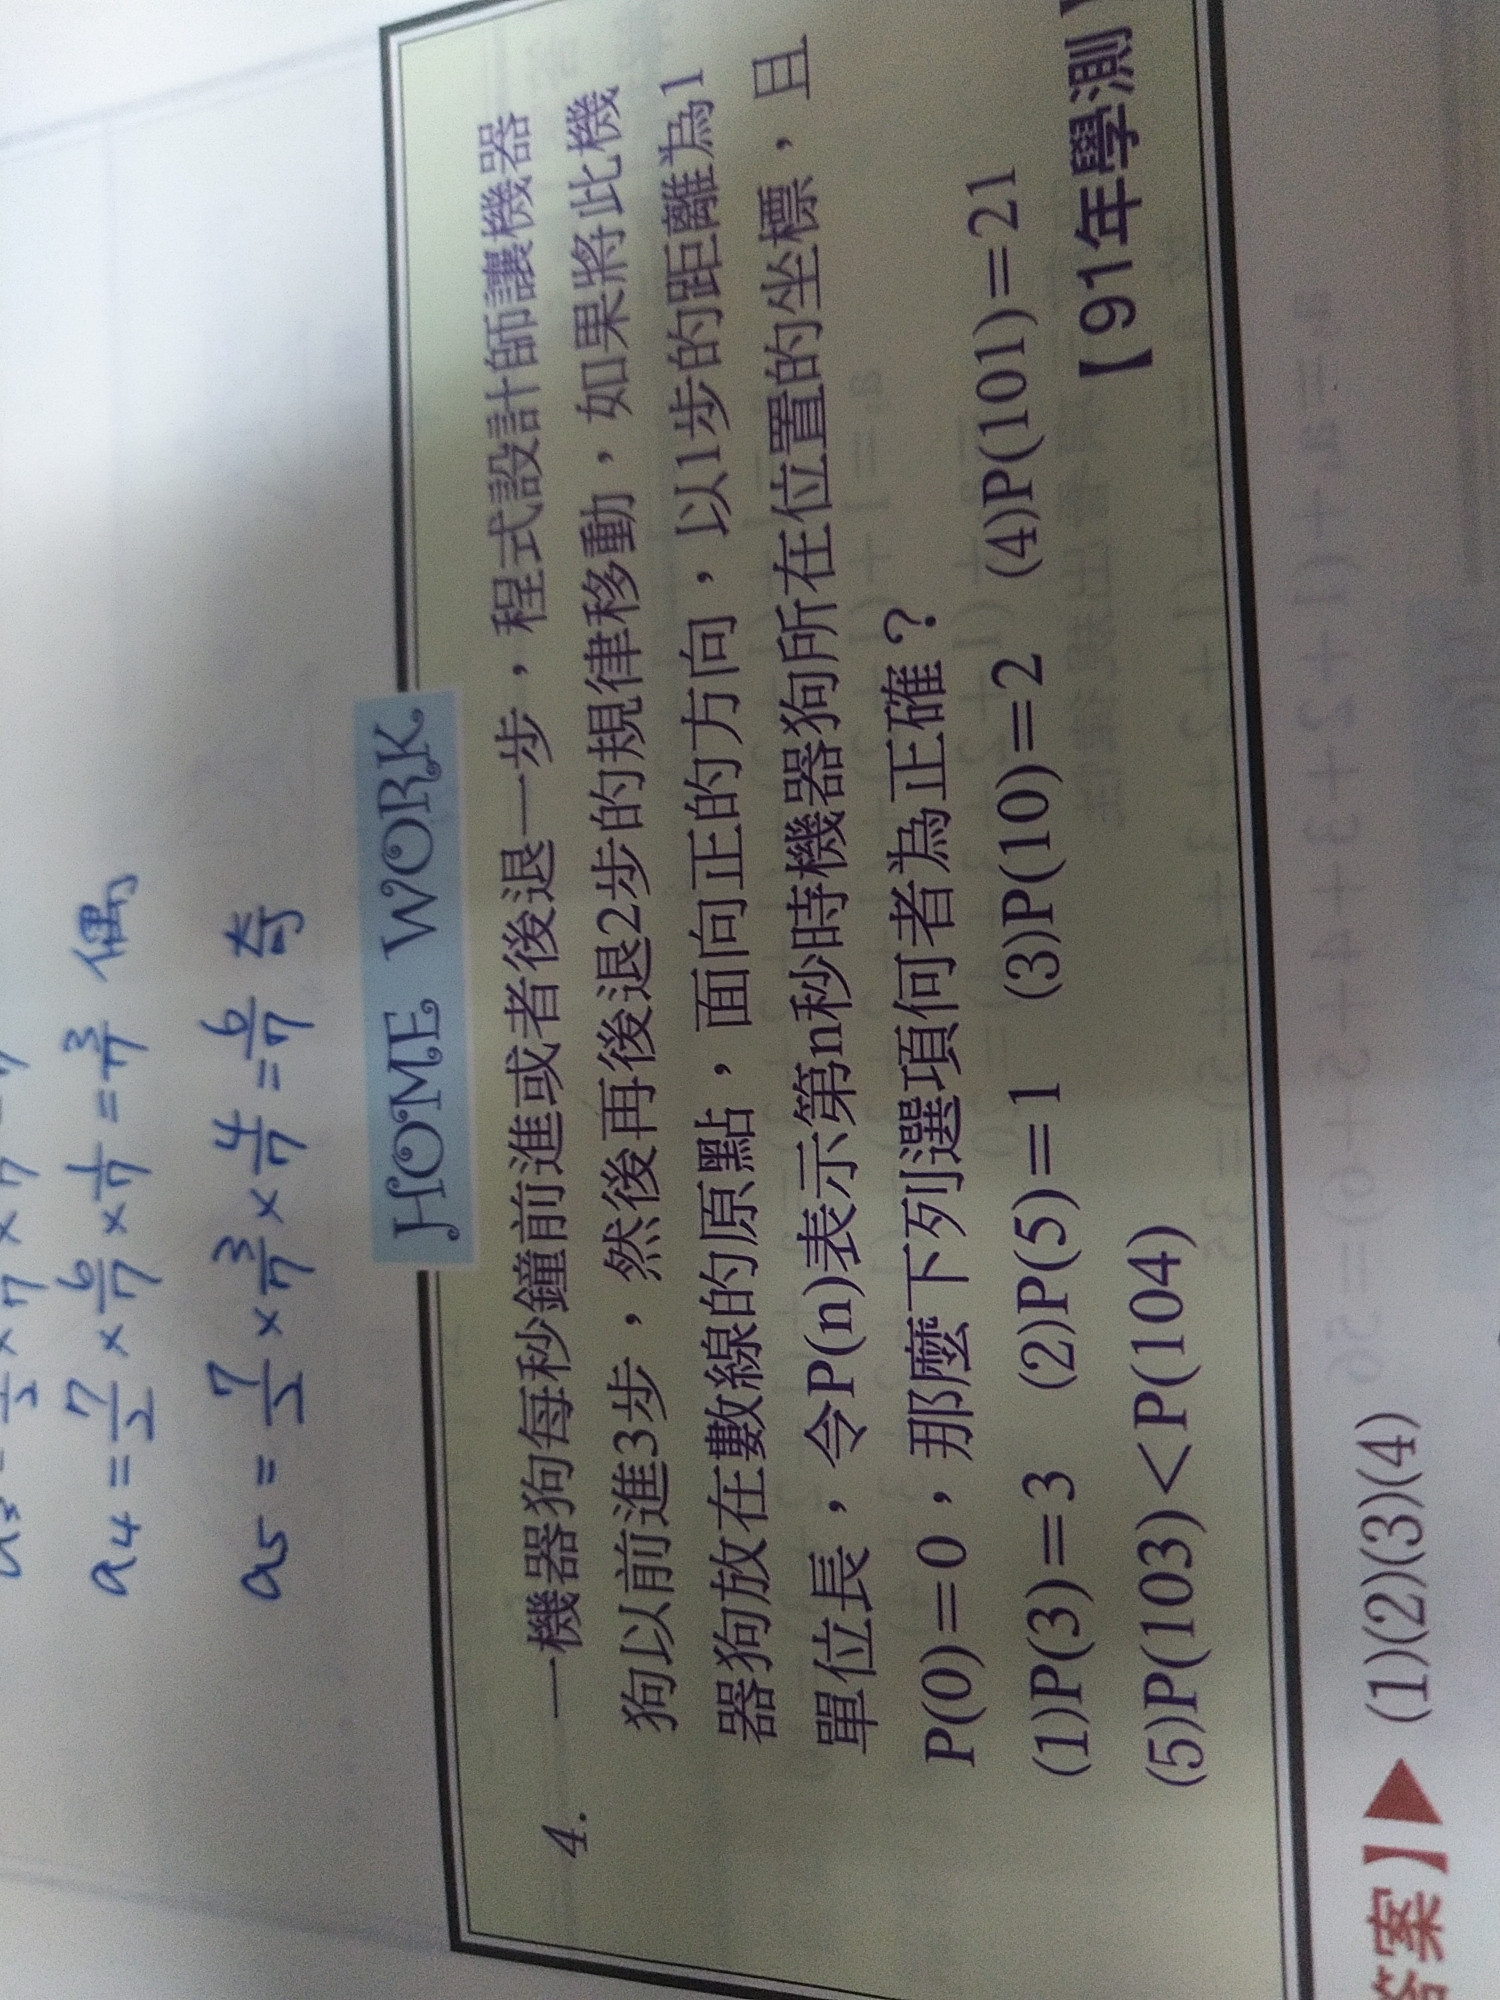 a₄ = 7/2 × 6/7 × 1/7 = 3/7 偶
a₅ = 7/2 × 3/7 × 4/7 = 6/7 奇
HOME WORK
4. 一機器狗每秒鐘前進或者後退一步，程式設計師讓機器
狗以前進3步，然後再後退2步的規律移動，如果將此機
器狗放在數線的原點，面向正的方向，以1步的距離為1
單位長，令P(n)表示第n秒時機器狗所在位置的坐標，且
P(0)=0，那麼下列選項何者為正確？
(1)P(3)=3 (2)P(5)=1 (3)P(10)=2 (4)P(101)=21
(5)P(103)<P(104)
【91年學測】
答案】▶ (1)(2)(3)(4)